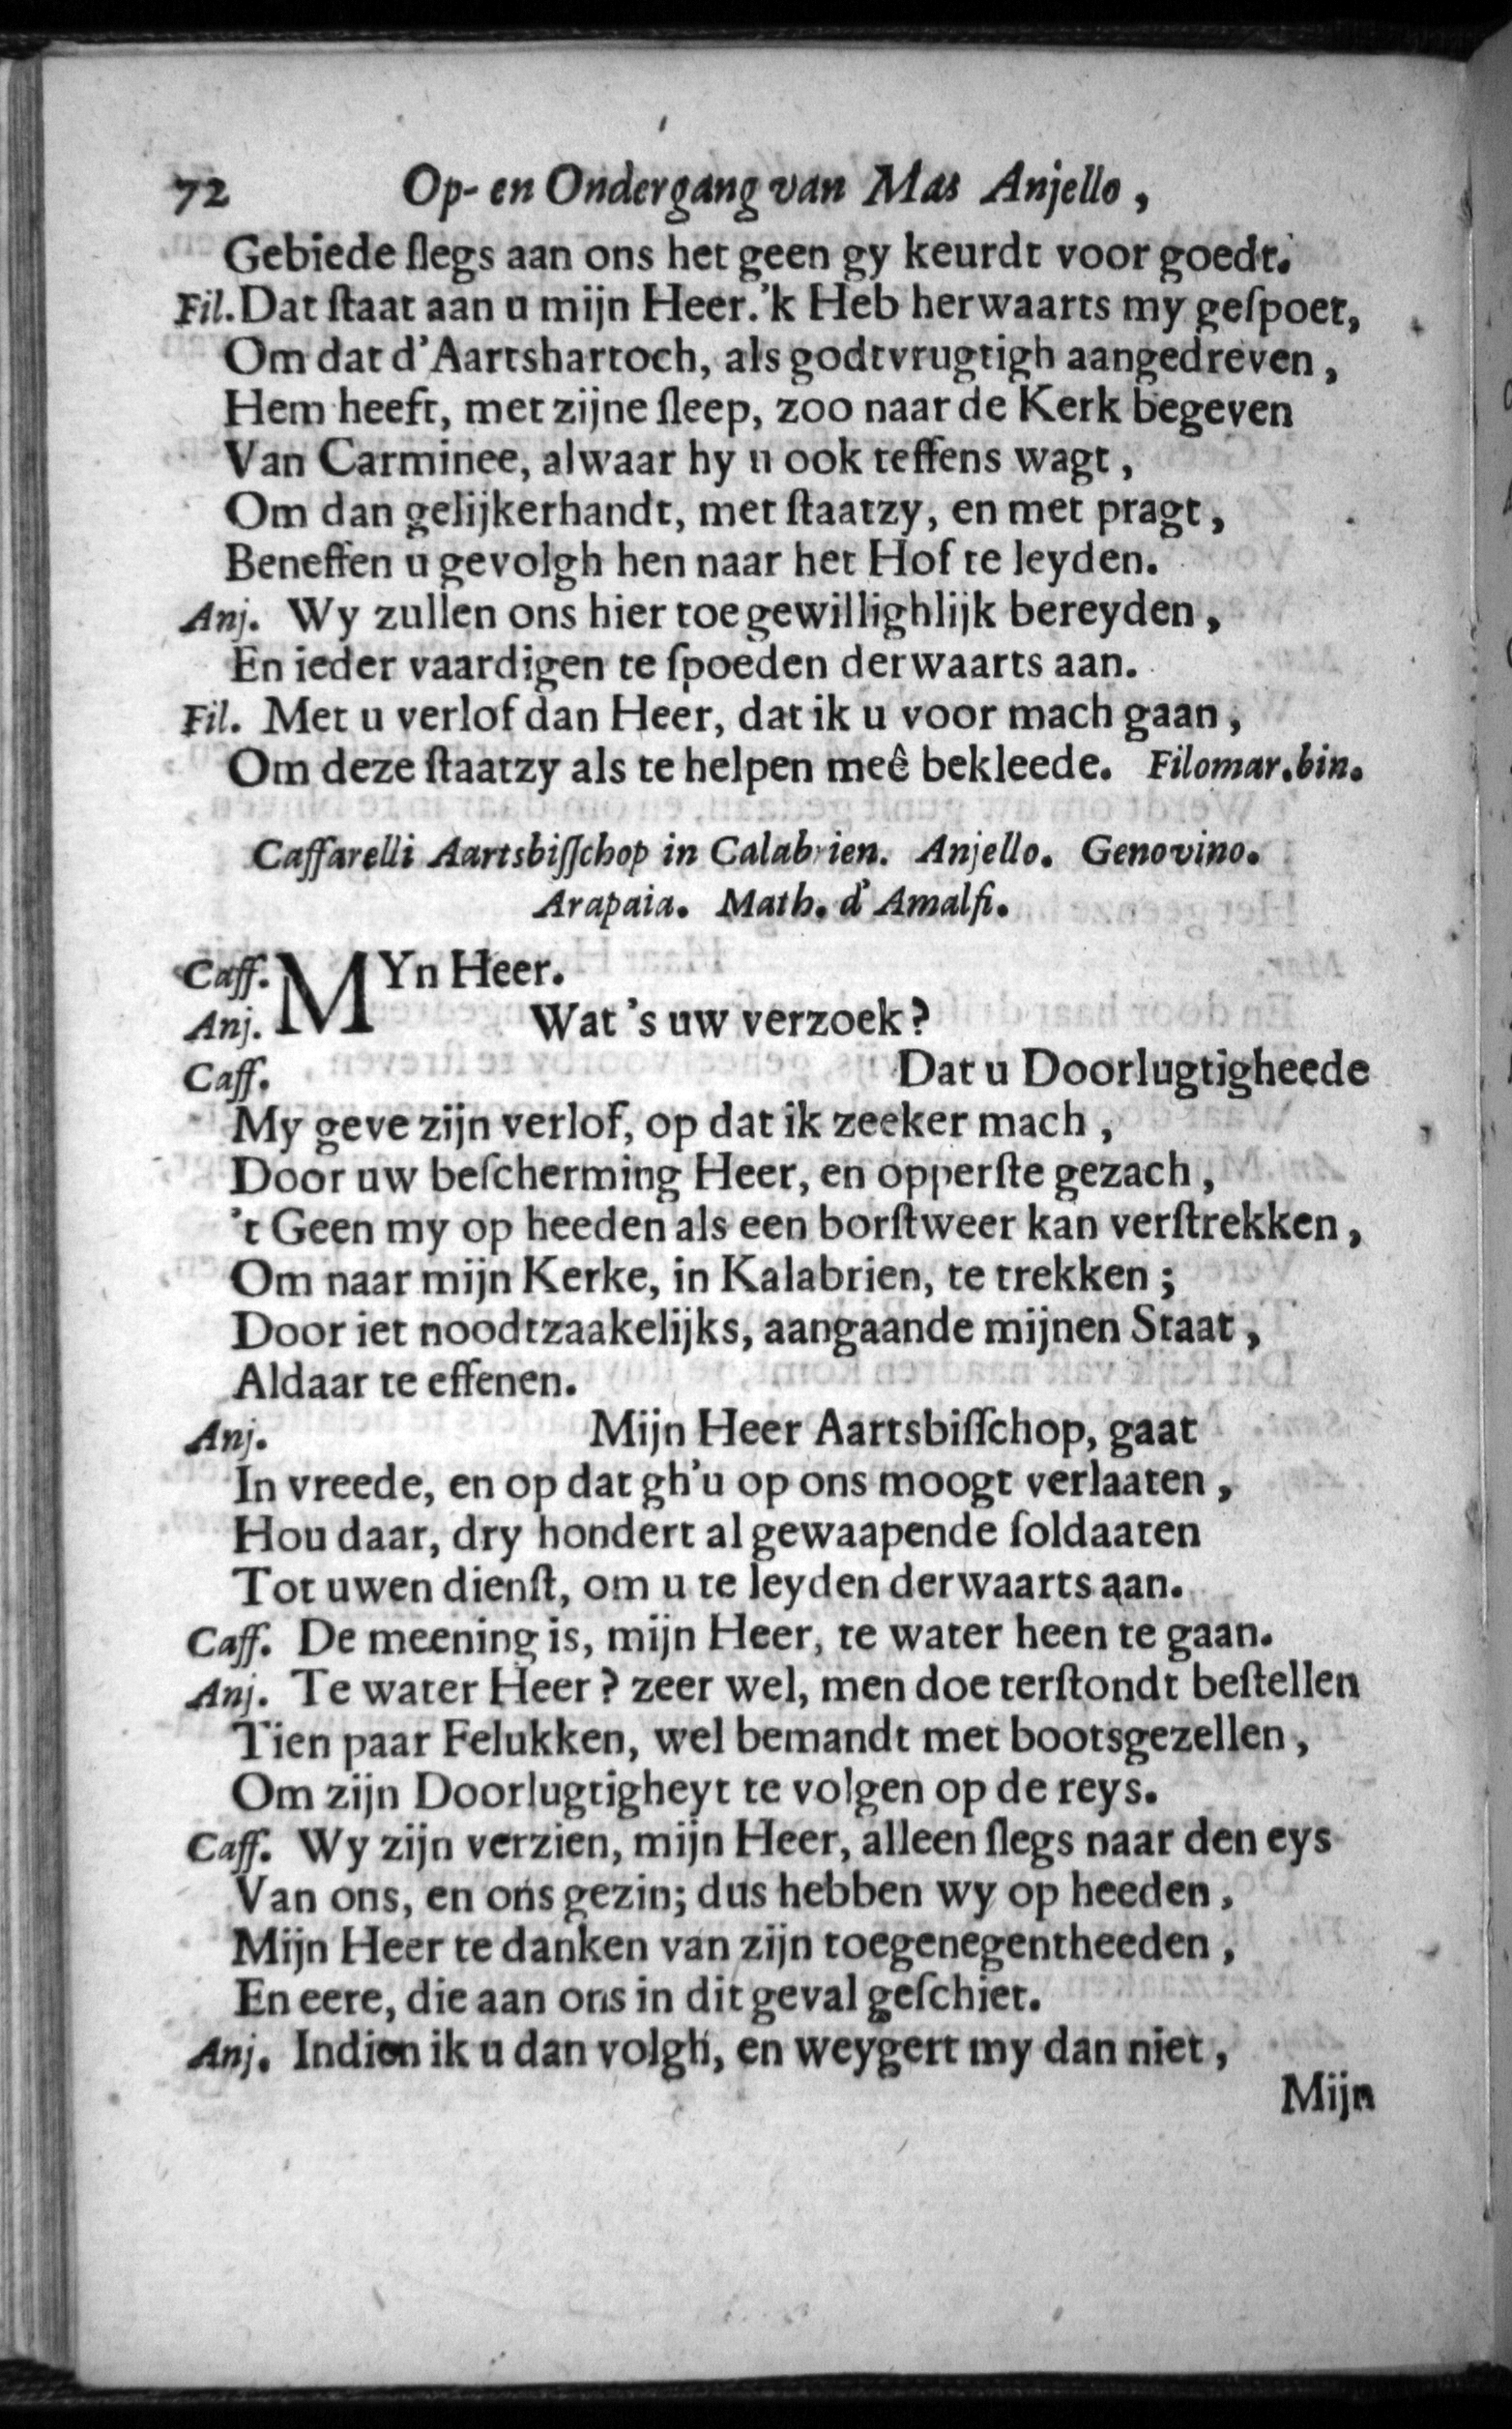 72 Op- en Ondergang van Mas Anjello,
Gebiede ſlegs aan ons het geen gy keurdt voor goedt.
Fil. Dat ſtaat aan u mijn Heer. 'k Heb herwaarts my geſpoet,
Om dat d'Aartshartoch, als godtvrugtigh aangedreven,
Hem heeft, met zijne ſleep, zoo naar de Kerk begeven
Van Carminee, alwaar hy u ook teffens wagt,
Om dan gelijkerhandt, met ſtaatzy, en met pragt,
Beneffen u gevolgh hen naar het Hof te leyden.
Anj. Wy zullen ons hier toe gewillighlijk bereyden,
En ieder vaardigen te ſpoeden derwaarts aan.
Fil. Met u verlof dan Heer, dat ik u voor mach gaan,
Om deze ſtaatzy als te helpen meê bekleede. Filomar. bin.
Caffarelli Aartsbiſſchop in Calabrien. Anjello. Genovino.
Arapaia. Math. d'Amalfi.
Caff. MYn Heer.
Anj. Wat 's uw verzoek?
Caff. Dat u Doorlugtigheede
My geve zijn verlof, op dat ik zeeker mach,
Door uw beſcherming Heer, en opperſte gezach,
't Geen my op heeden als een borſtweer kan verſtrekken,
Om naar mijn Kerke, in Kalabrien, te trekken;
Door iet noodtzaakelijks, aangaande mijnen Staat,
Aldaar te effenen.
Anj. Mijn Heer Aartsbiſſchop, gaat
In vreede, en op dat gh'u op ons moogt verlaaten,
Hou daar, dry hondert al gewaapende ſoldaaten
Tot uwen dienſt, om u te leyden derwaarts aan.
Caff. De meening is, mijn Heer, te water heen te gaan.
Anj. Te water Heer? zeer wel, men doe terſtondt beſtellen
Tien paar Felukken, wel bemandt met bootsgezellen,
Om zijn Doorlugtigheyt te volgen op de reys.
Caff. Wy zijn verzien, mijn Heer, alleen ſlegs naar den eys
Van ons, en ons gezin; dus hebben wy op heeden,
Mijn Heer te danken van zijn toegenegentheeden,
En eere, die aan ons in dit geval geſchiet.
Anj. Indien ik u dan volgh, en weygert my dan niet,
Mijn